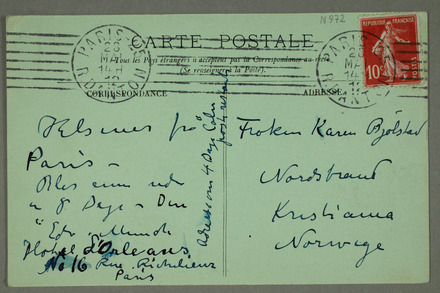 N 972
CARTE POSTALE
Tous les Pays étrangers n'acceptent pas la Correspondance au recto
(Se renseigner à la Poste).
CORRESPONDANCE
ADRESSE
REPUBLIQUE FRANÇAISE
10c
POSTES
PARIS
Hilsener frå
Paris –
Din
Edv. Munch
Hotel d'Orleans
No 16 Rue Richelieu
Paris
Adresse om 4 Dage Cöln
poste restante
Frøken Karen Bjølstad
Nordstrand
Kristiania
Norwege